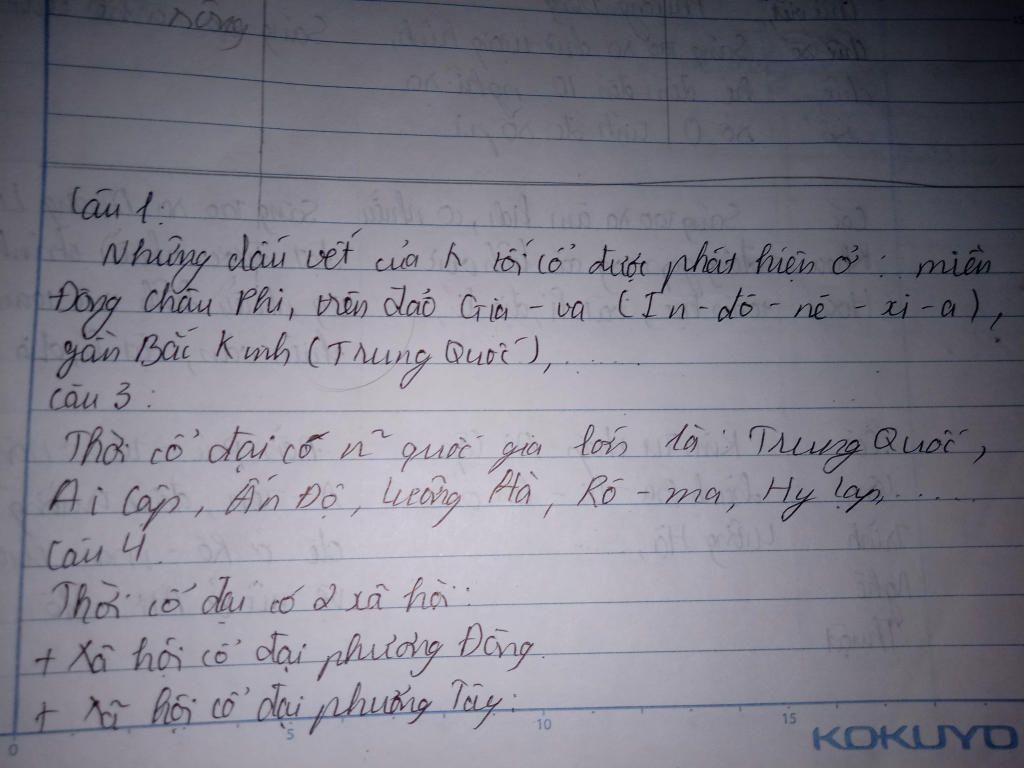 nông
Câu 1:
Những dấu vết của h tối cổ được phát hiện ở : miền
Đông Châu Phi, trên đảo Gia - va (In - đô - nê - xi - a),
gần Bắc Kinh (Trung Quốc), ......
Câu 3 :
Thời cổ đại có n² quốc gia lớn là : Trung Quốc,
Ai Cập, Ấn Độ, Lưỡng Hà, Rô - ma, Hy Lạp, .....
Câu 4
Thời cổ đại có 2 xã hội :
+ Xã hội cổ đại phương Đông
+ Xã hội cổ đại phương Tây :
0 5 10 15
KOKUYO